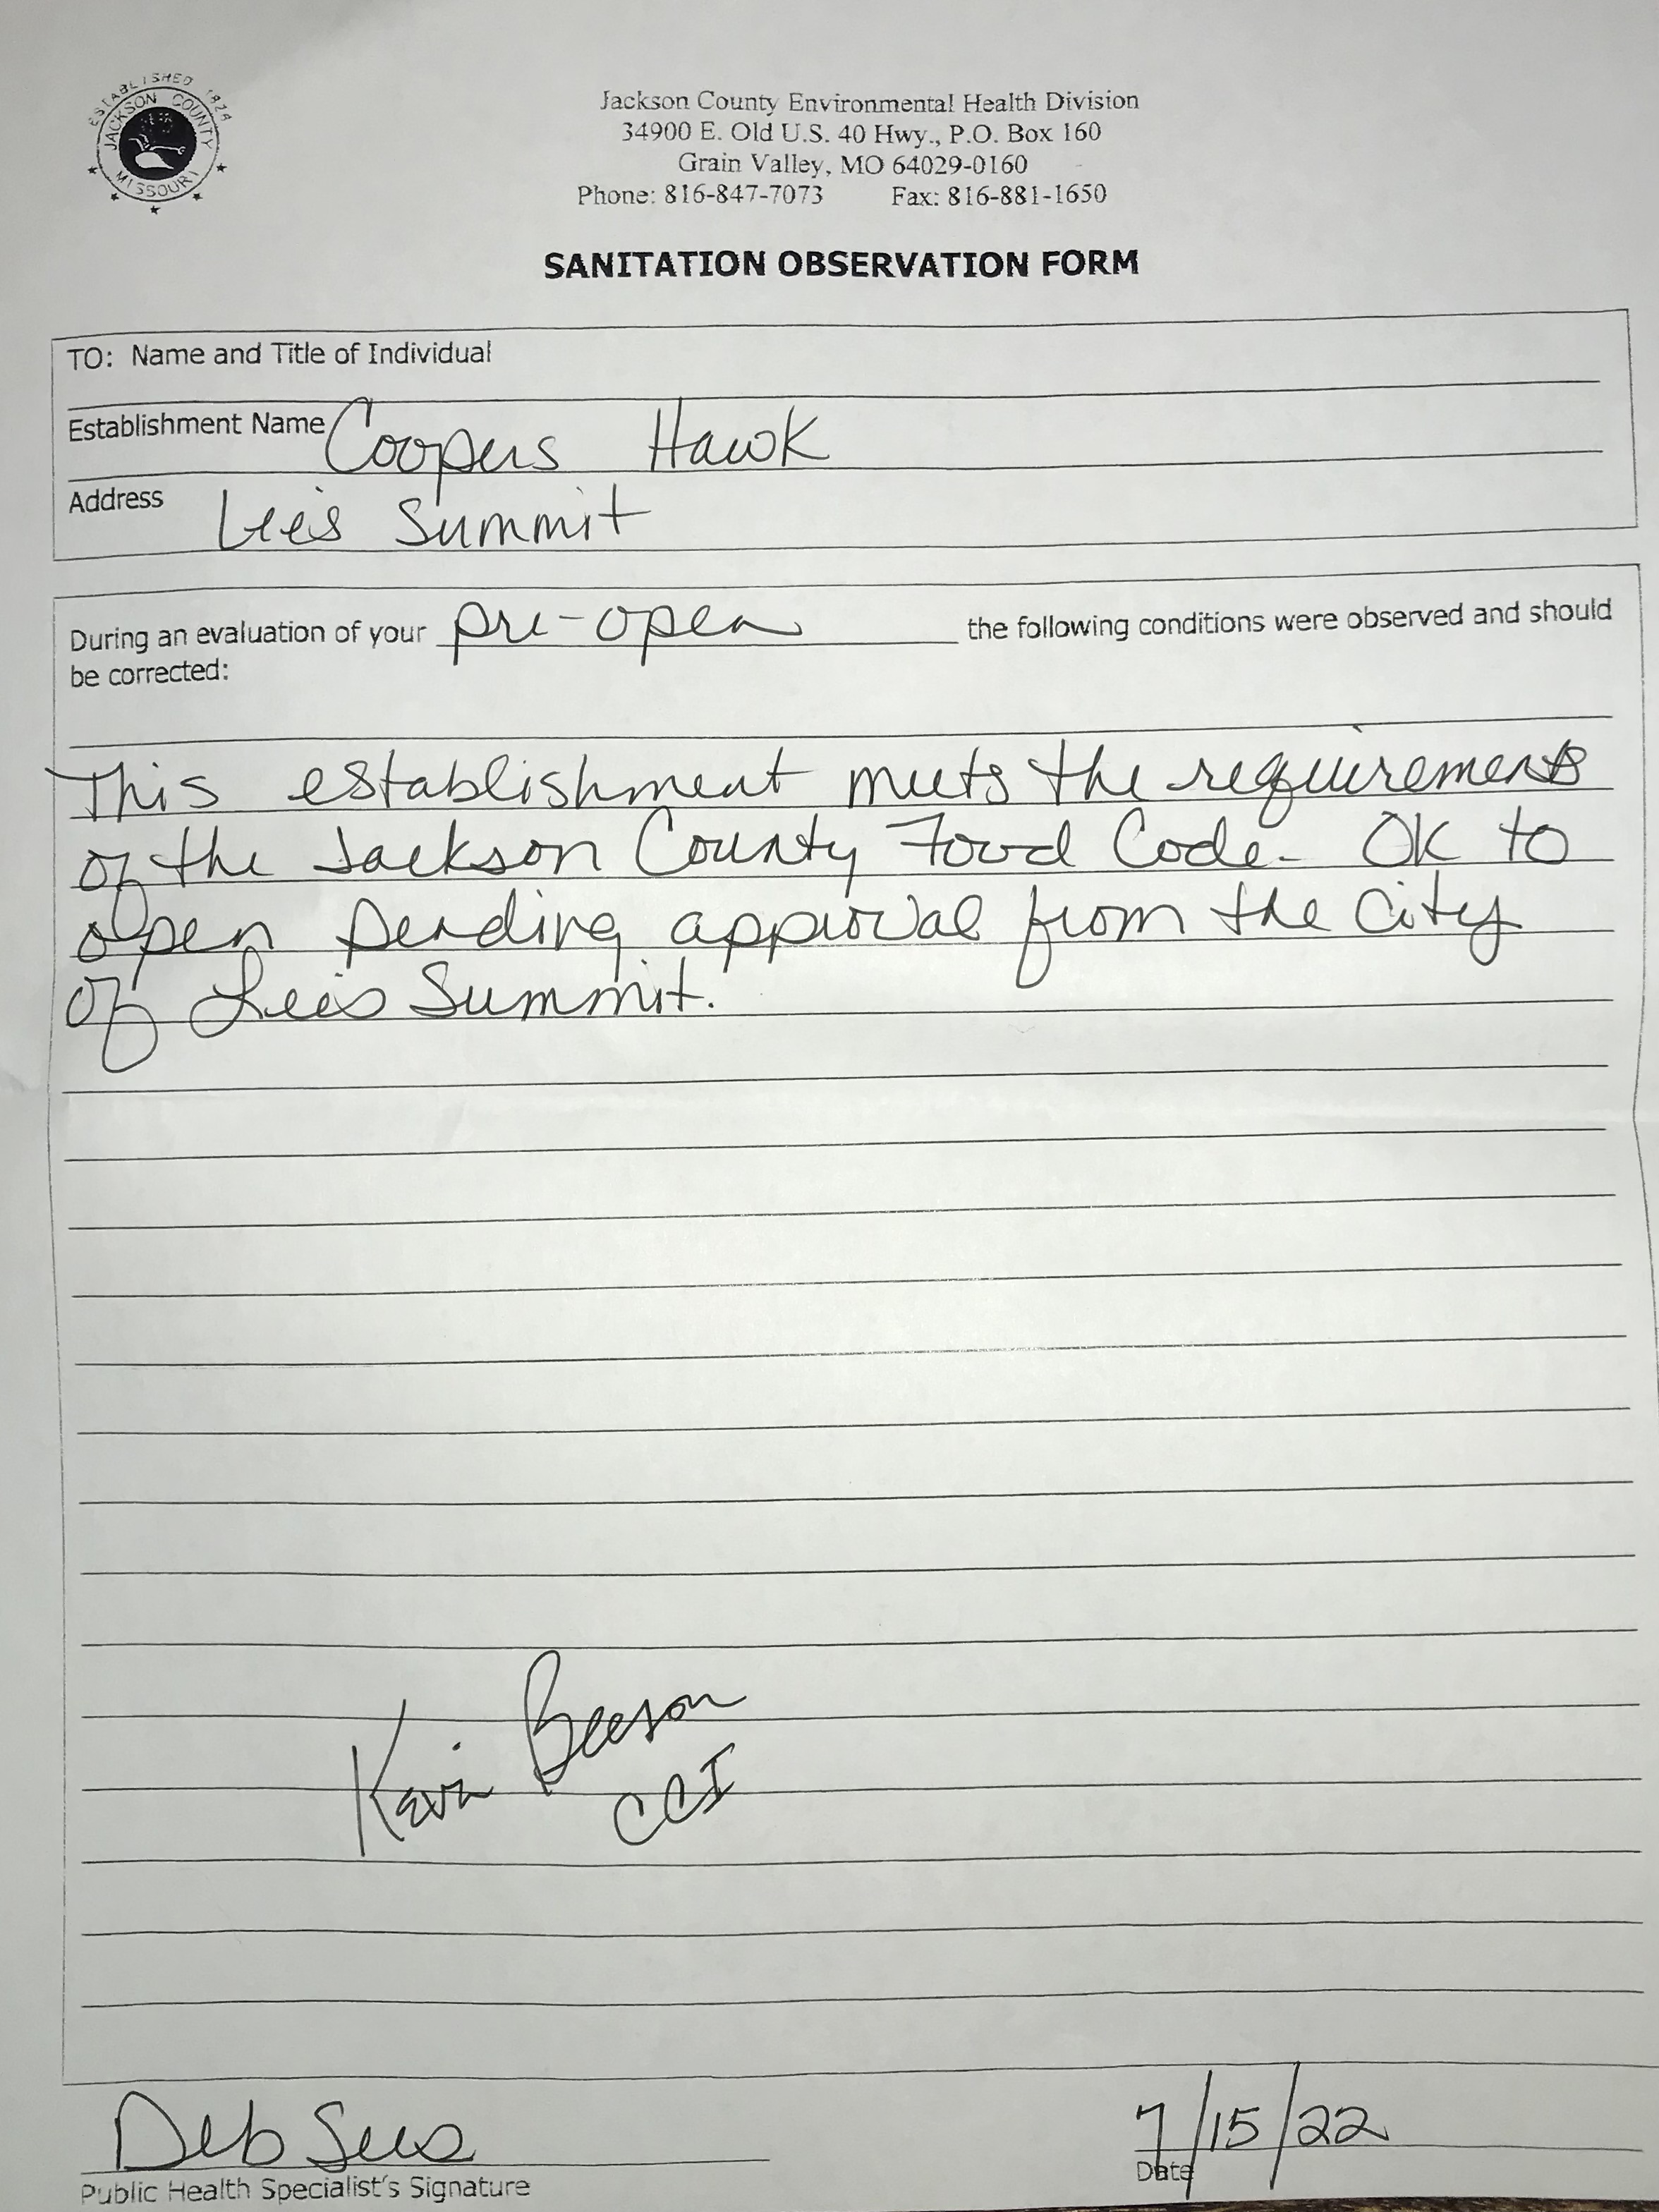 ESTABLISHED 1826
JACKSON COUNTY
MISSOURI
Jackson County Environmental Health Division
34900 E. Old U.S. 40 Hwy., P.O. Box 160
Grain Valley, MO 64029-0160
Phone: 816-847-7073 Fax: 816-881-1650
SANITATION OBSERVATION FORM
TO: Name and Title of Individual
Establishment Name Coopers Hawk
Address Lee's Summit
During an evaluation of your pre-open the following conditions were observed and should
be corrected:
This establishment meets the requirements
of the Jackson County Food Code. OK to
open pending approval from the City
of Lee's Summit.
Kevin Beeson
CCI
Deb Sees
Public Health Specialist's Signature
7/15/22
Date